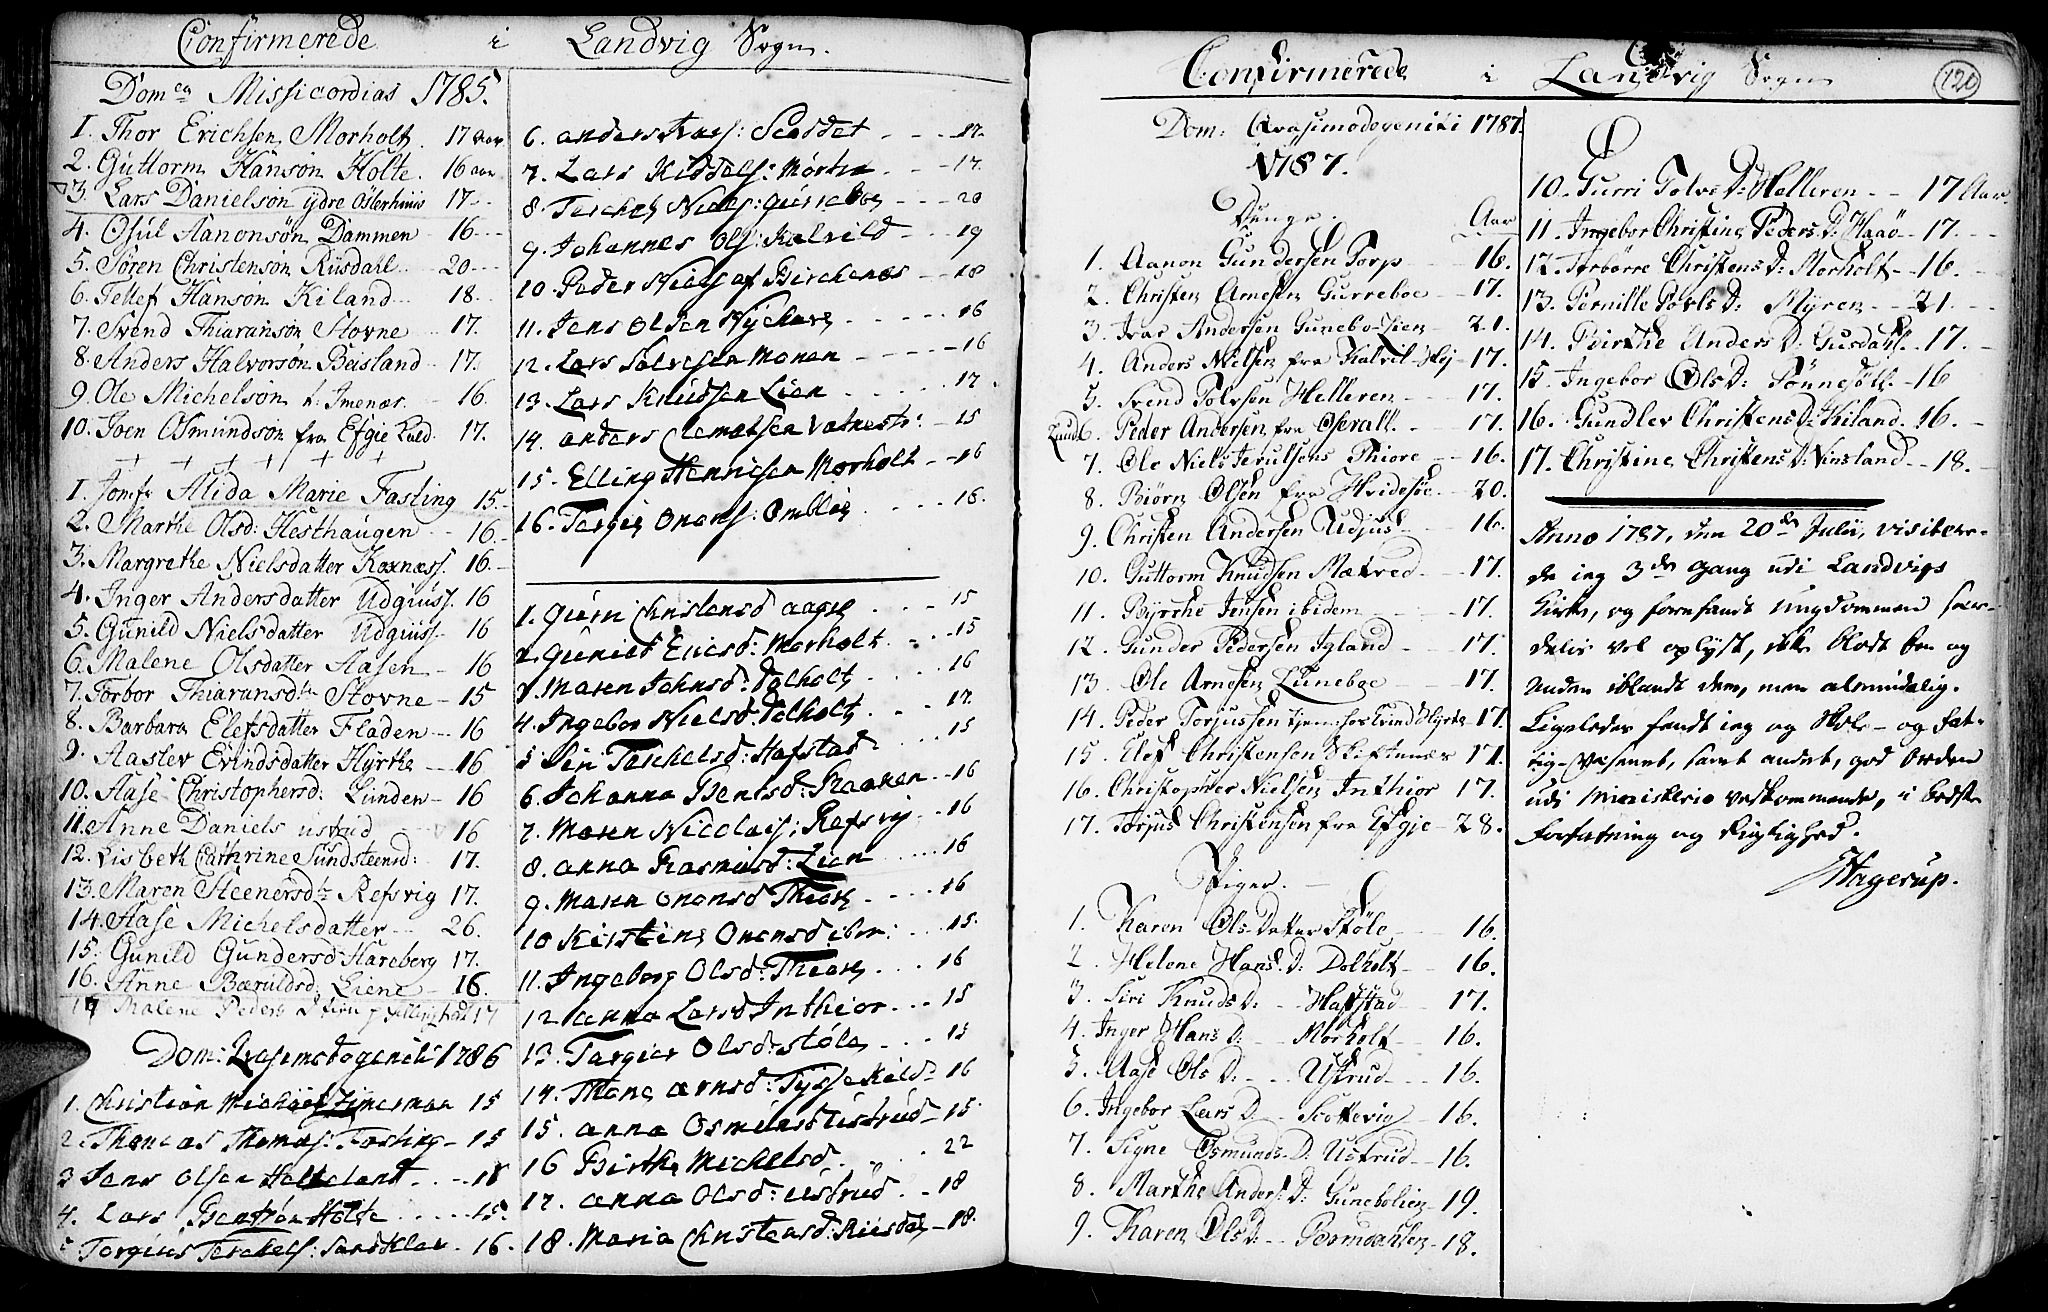 Confirmerede i Landvig Sogn.
Dom ca Missicordias 1785.
1. Thor Erichsen Morholt. 17 aar
2. Guttorm Hanson Holte. 16 aar
3. Lars Danielson ydre Österhuus 17
4. Osul Aanonsøn Dammen 16
5. Søren Christensøn Riisdahl 20
6. Tellef Hansøn Kiland 18.
7. Svend Thiaransøn Stovne 17.
8. Anders Halvorsøn Beisland 17.
9. Ole Michelsøn t: Imenær. 16.
10. Joen Osmundsøn fra Efgie 17.
+ + + + + +
1. Jomfr Alida Marie Fasting 15.
2. Marthe Olsd: Hesthaugen 16.
3. Margrethe Nielsdatter Kaxnæss. 16.
4. Inger Andersdatter Udgiuss. 16
5. Gunild Nielsdatter Udgiuss. 16
6. Malene Olsdatter Aasen 16
7. Torbor Thiaransdtr Stovne 15
8. Barbara Elefsdatter Fladen 16
9. Aaslev Evindsdatter Hyrthe 16
10. Aase Christophersd: Lunden 16
11. Anne Daniels ustrud 16
12. Lisbeth Cathrine Sundsteensd: 17.
13. Maren Steenersdtr Refsvig 17.
14. Aase Michelsdatter 26.
15. Gunild Gundersd Hareberg 17.
16. Anne Bæruldsd: Liene 16.
17 Malene Peders 17
Dom: Qvasimodogeniti 1786
1. Christian Michael Zimerman 15
2. Thomas Thomas: Fasting 15
3 Jens Olsen 18
4. Lars Bentsøn Holte 15.
5 Torgius Terchels: Sandklev 16.
6. Anders 17.
7. Lars Kiddels: Mørhn 17.
8. Terchel Niels: Gurreboe 20
9. Johannes Ols: Kalvild 19
10. Peder Niels af Birchenæs 18
11. Jens Olsen Nÿehave 16
12. Lars Salvesen Monen 16
13. Lars Knudsen Lien 17.
14. Anders Clemetsen Vatnestr: 15
15. Elling Henricsen Morholt 16
16. Targier Onons: Omblie 16.
1. Gurri Christensd Aagre 15
2. Guniel Ericsd: Morholt 15
3. Maren Johnsd: Dolholt 16
4. Ingebor Nielsd: Dolholt 17.
5 Siri Terchelsd: Hafstad 15
6. Johanna Bentsd: Kaaxen 16
7. Maren Nicolais: Refsvig 16
8. Anna Rasmusd: Lien 16
9. Maren Ononsd Thiore 16
10 Kirstine Ononsd: ibm: 15.
11. Ingeborg Olsd: Thiore 16
12 Anna Larsd Inthior 15
13. Targier Olsd: støle 15
14. Thone Arnsd: Tysse Kild 16
15. Anna Osmunsd Ustrud 15
16 Birthe Michelsd 22
17. Anna Olsd: ustrud 18
18. Maria Christensd: Riisdal 18.
Confirmerede i Landvig Sogn
120
Dom: Qvasimodogeniti 1787.
1787.
Drenge. Aar
1. Aanon Gundersen Torp 16.
2. Christen Arnesen Gurreboe 17.
3. Ivar Andersen Gunebo-Lien 21.
4. Anders Nielsen fra Kalvil-Hej 17.
5. Svend Tolvsen Helleren 17.
6. Peder Andersen fra Osevall. 17.
7. Ole Niels Terulsens Thiore 16.
8. Biørn Olsen fra Hvidesøe. 20.
9. Christen Andersen Udjus. 16.
10. Guttorm Knudsen Møetved 17.
11. Byrthe Jensen ibidem 17.
12. Gunder Pedersen Igland 17.
13. Ole Arnesen Luneboe 17.
14. Peder Torjussen tjen: hos Evind Hyrte 17.
15. Elef Christensen Skiftenæs 17.
16. Christopher Nielsen Inthior 17.
17. Torjus Christensen fra Efgje 28.
Piger.
1. Karen Ols Datter Støle 16.
2. Helene Hans D: Dolholt 16.
3. Siri Knuds D: Haffstad 17.
4. Inger Hans D: Morholt 16.
5. Aase Ols D: Ustrud 16.
6. Ingebor Lars D: Skottevig 16.
7. Signe Osmunds D: Ustrud 16.
8. Marthe Anders D: Gunebolien 19.
9. Karen Ols D: Bormdahlen 18.
10. Gurri Tolvs D: Helleren 17 Aar.
11. Ingebor Christine Peders D: Haaø 17.
12. Torbörre Christens D: Morholt 16.
13. Pernille Povls D: Myren 21.
14. Birthe Anders D: Gusdahl 17.
15. Ingebor Ols D: Tønnesöll. 16
16. Gundlev Christens D: Kiland. 16.
17. Christine Christens D: Vinsland 18.
Anno 1787, den 20de Julii, visiteer-
de jeg 3die gang udi Landvigs
Kirke, og forefandt ungdommen sær-
deles vel oplyst, ikke blot een og
anden iblandt dem, men almindelig.
Ligeledes fandt jeg og Skole- og Fat-
tig-Væsenet, samt andet, god Orden
udi Ministerio vedkommende, i bedste
Forfatning og Rigtighed.
Hagerup.